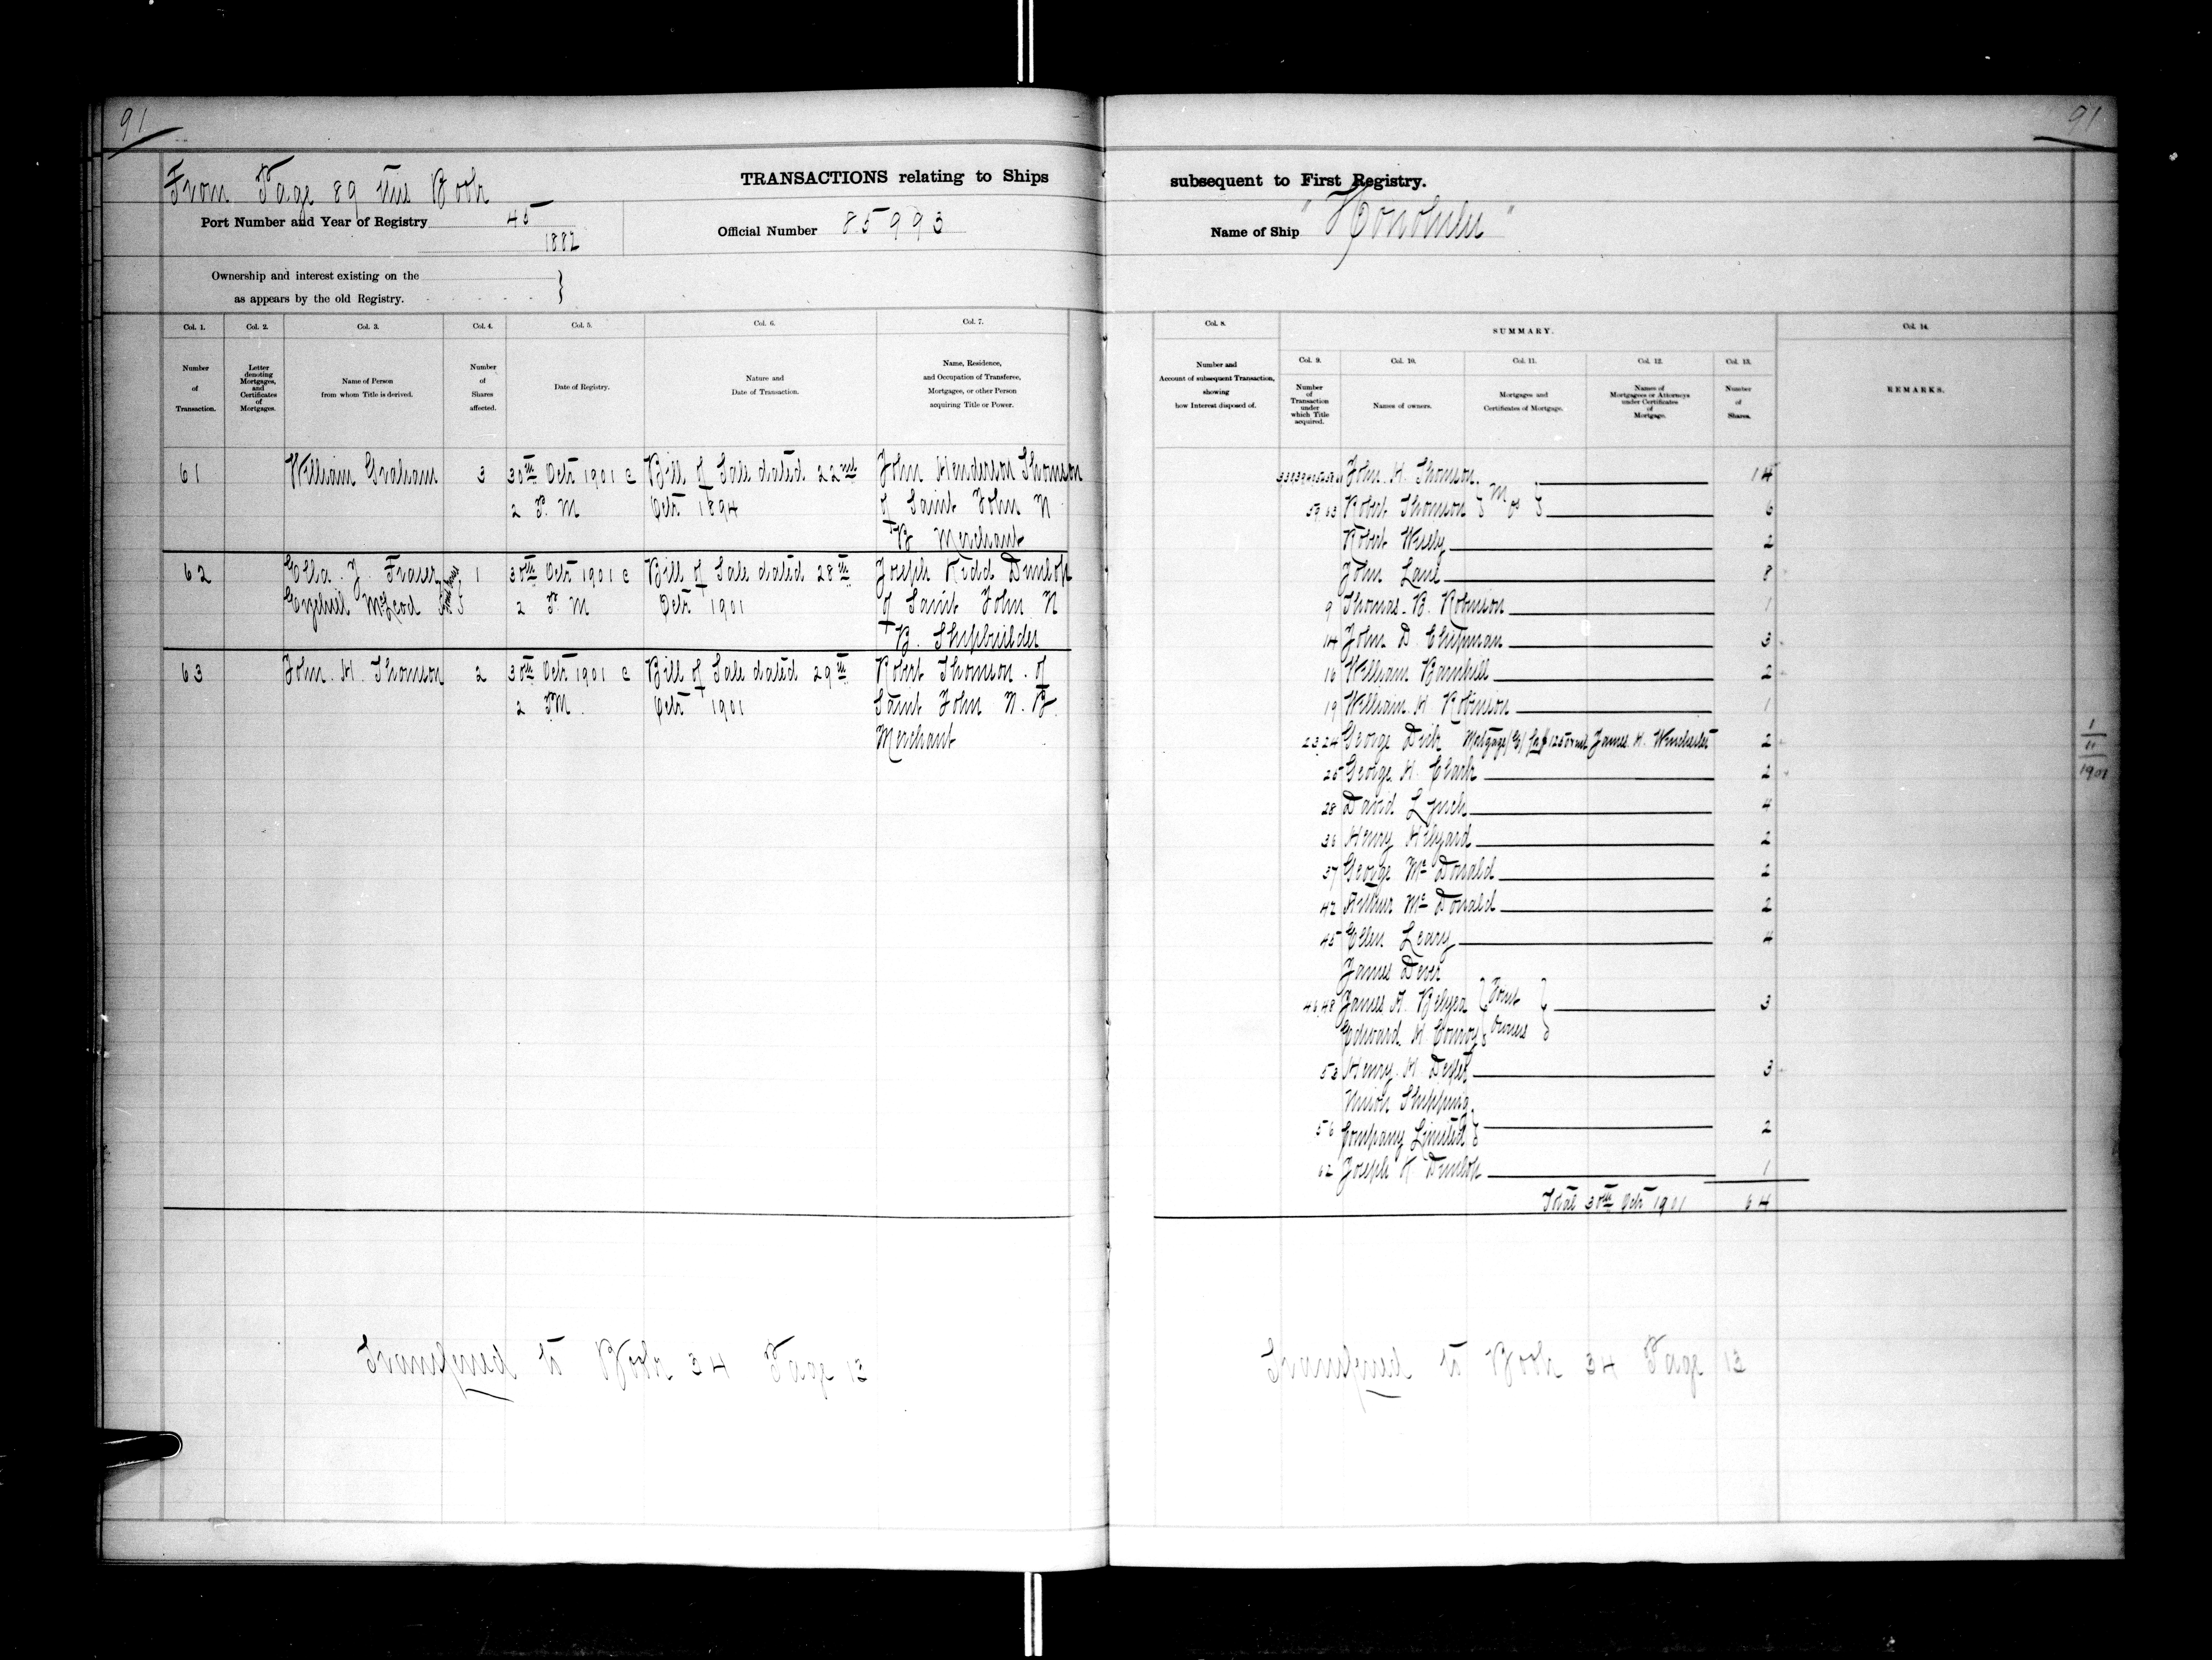 91
91
From Page 89 this Book
TRANSACTIONS relating to Ships
subsequent to First Registry.
Port Number and Year of Registry 45
1882
Official Number 85993
Name of Ship "Honolulu"
Ownership and interest existing on the
as appears by the old Registry.
Col. 1.
Number
of
Transaction.
Col. 2.
Letter
denoting
Mortgages,
and
Certificates
of
Mortgages.
Col. 3.
Name of Person
from whom Title is derived.
Col. 4.
Number
of
Shares
affected.
Col. 5.
Date of Registry.
Col. 6.
Nature and
Date of Transaction.
Col. 7.
Name, Residence,
and Occupation of Transferee,
Mortgagee, or other Person
acquiring Title or Power.
61 William Graham 3 30th Octr 1901 @ Bill of Sale dated 22nd John Henderson Thomson
2 P. M Octr 1894 of Saint John N
B Merchant
62 Ella J. Fraser 1 30th Octr 1901 @ Bill of Sale dated 28th Joseph Kidd Dunlop
Ezekiel McLeod 2 P. M Octr 1901 of Saint John N
B. Shipbuilder
63 John. H. Thomson 2 30th Octr 1901 @ Bill of Sale dated 29th Robert Thomson. of
2 PM. Octr 1901 Saint John N. B.
Merchant
Transferred to Book 34 Page 13
Col. 8.
Number and
Account of subsequent Transaction,
showing
how Interest disposed of.
SUMMARY.
Col. 9.
Number
of
Transaction
under
which Title
acquired.
Col. 10.
Names of owners.
Col. 11.
Mortgages and
Certificates of Mortgage.
Col. 12.
Names of
Mortgagees or Attorneys
under Certificates
of
Mortgage.
Col. 13.
Number
of
Shares.
Col. 14.
REMARKS.
John. H. Thomson 14
59,63 Robert Thomson 6
Robert Wisely 2
John Lane 8
9 Thomas. B. Robinson 1
14 John D. Chipman 3
16 William Barnhill 2
19 William. H. Robinson 1
23,24 George Dick Mortgage James. H. Winchester 2
25 George. H. Clark 2
28 David Lynch 4
36 Henry Hilyard 2
37 George Mc Donald 2
42 Arthur Mc Donald 2
45 Ellen Leary 4
James Dever
46,48 James A. Belyea Joint 3
Edward H. Conroy Owners
53 Henry. H. Dexter 3
Union Shipping
56 Company Limited 2
62 Joseph K Dunlop 1
Total 30th Octr 1901 64
1
11
1901
Transferred to Book 34 Page 13